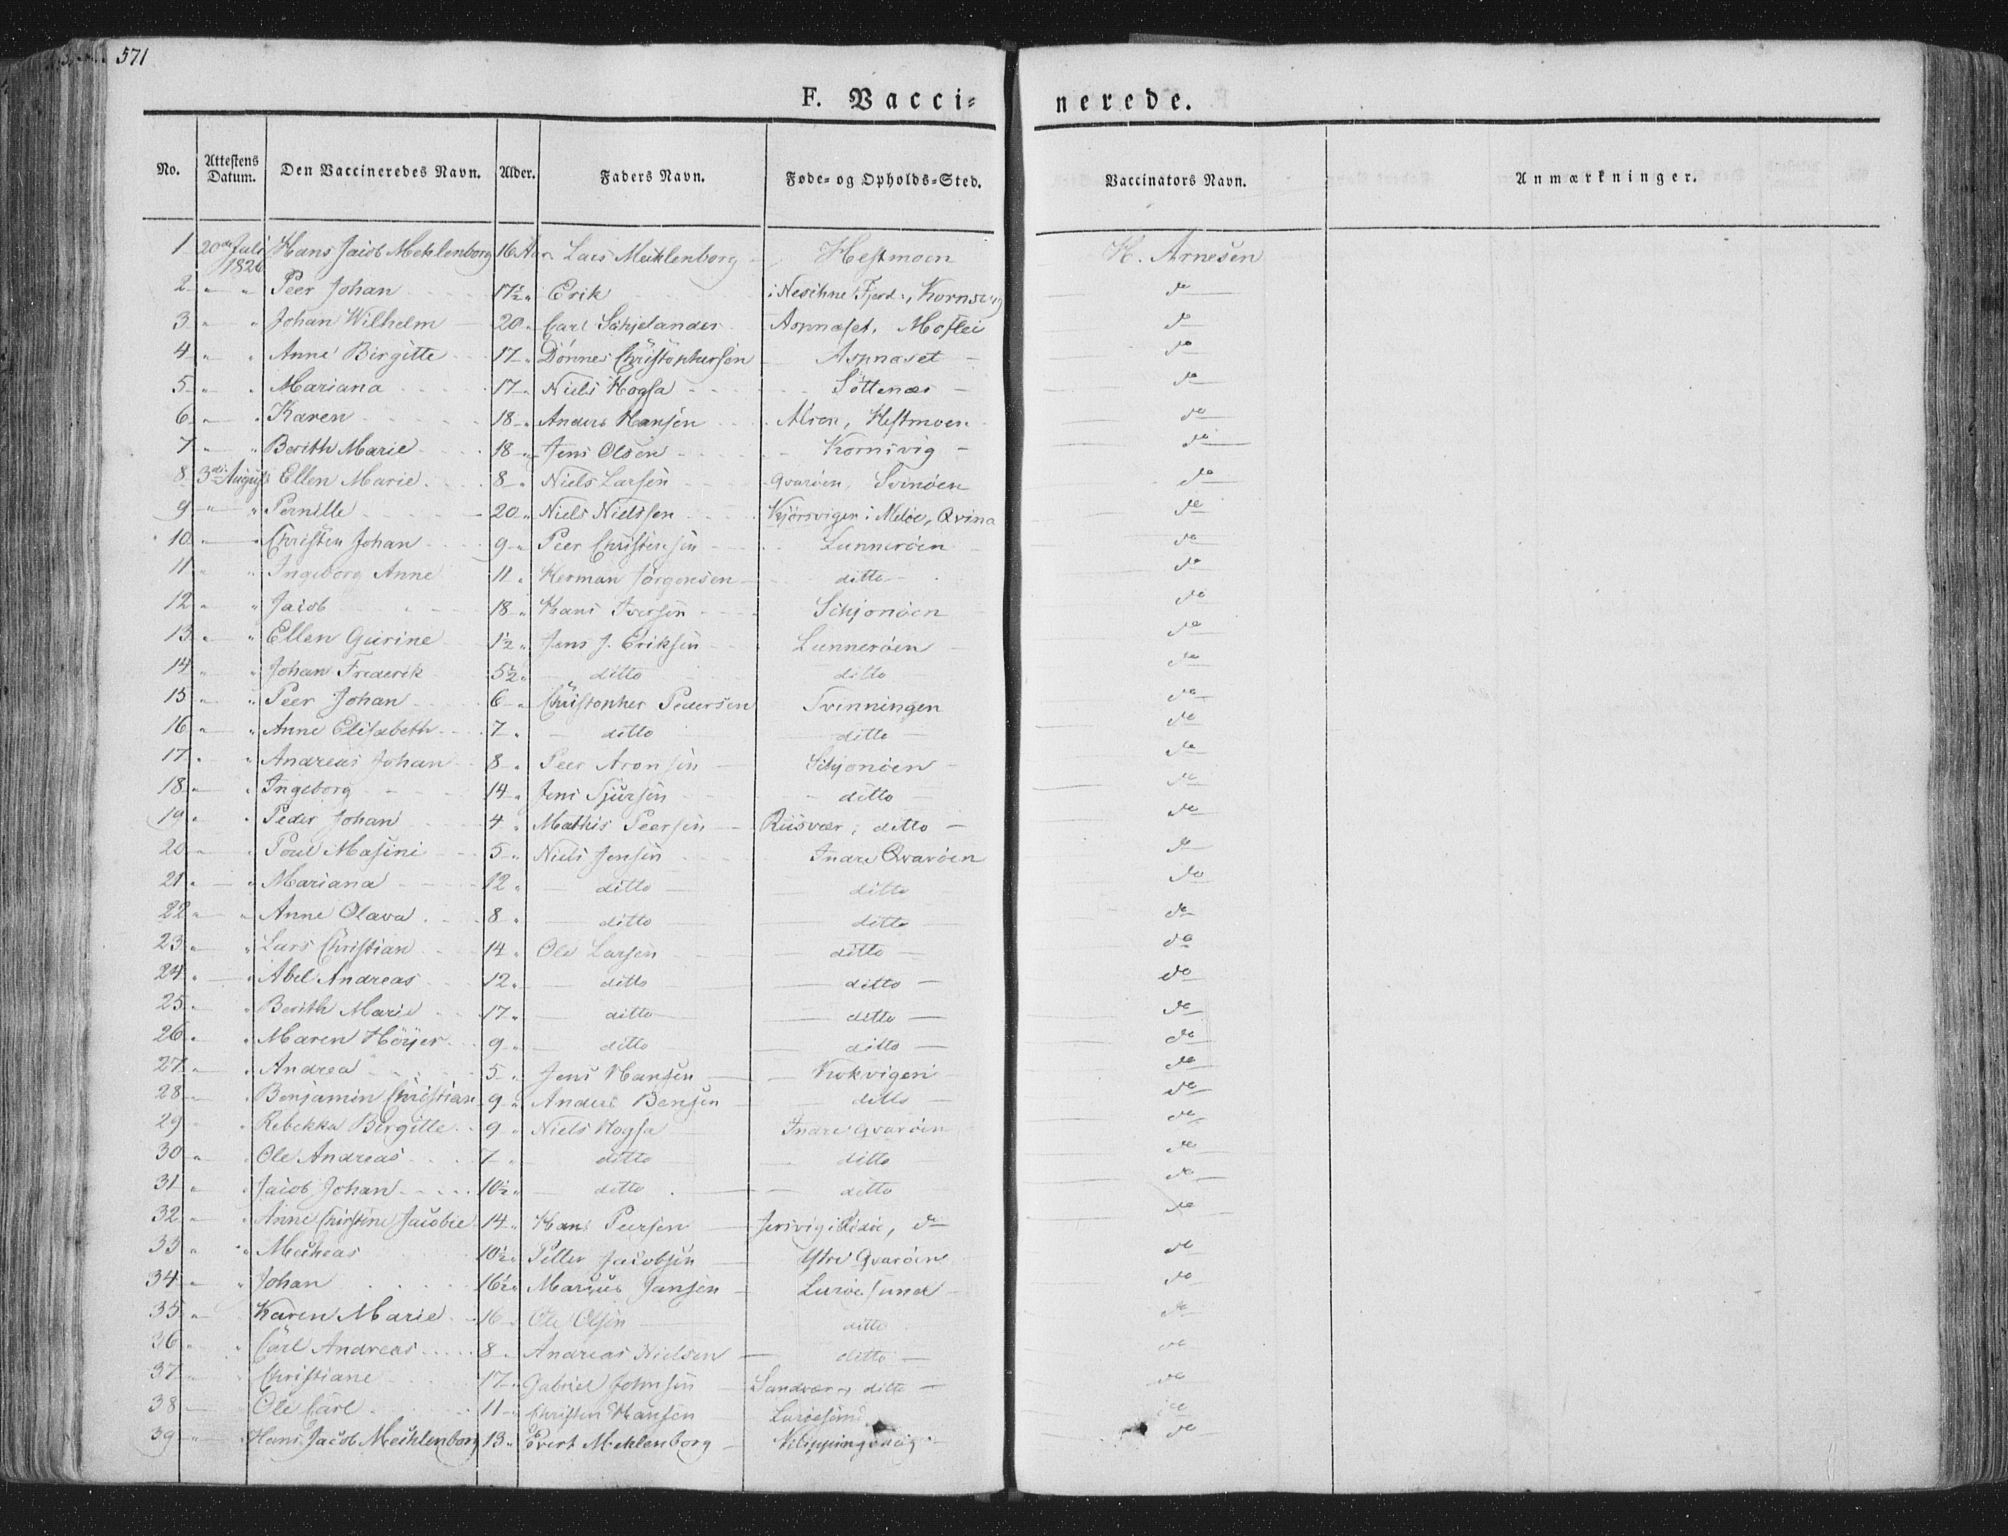 571
F. Vacci= nerede.
No. Attestens Datum. Den Vaccineredes Navn. Alder. Faders Navn. Føde- og Opholds-Sted. Vaccinators Navn. Anmærkninger.
1 20de Juli 1826 Hans Jacob Mechlenborg 16 Aar Lars Mechlenborg Hestmoen H. Arnesen
2 " " Peer Johan 17½ " Erik i Nesihne Fjord, Kornsvig do
3 " " Johan Wilhelm 20 " Carl Schjelander Aspnæset, Moflei do
4 " " Anne Birgitte 17 " Dönnes Christophersen Aspnæset do
5 " " Mariana 17 " Niels Hogsa Söttenæs do
6 " " Karen 18 " Anders Hansen Alsen, Hestmoen do
7 " " Berith Marie 18 " Jens Olsen Kornsvig do
8 3de August Ellen Marie 8 " Niels Larsen Qvaröen, Svinöen do
9 " " Pernille 20 " Niels Nielsen Kjörsvigen i Melöe, Qvina do
10 " Christen Johan 9 " Peer Christensen Lunneröen do
11 " " Ingeborg Anne 11 " Herman Jörgensen ditto do
12 " " Jacob 18 " Hans Iversen Schjonöen do
13 " " Ellen Gurine 1½ " Jens J. Eriksen Lunneröen do
14 " " Johan Frederik 5½ " ditto ditto do
15 " " Peer Johan 6 " Christopher Pedersen Tvinningen do
16 " " Anne Elisabeth 7 " ditto ditto do
17 " " Andreas Johan 8 " Peer Aronsen Schjonöen do
18 " " Ingeborg 14 " Jens Sjursen ditto do
19 " " Peder Johan 4 " Mathis Peersen Riisvær, ditto do
20 " " Poul Masini 5 " Niels Jensen Indre Qvaröen do
21 " " Mariana 12 " ditto ditto do
22 " " Anne Olava 8 " ditto ditto do
23 " " Lars Christian 14 " Ole Larsen ditto do
24 " " Abel Andreas 12 " ditto ditto do
25 " " Berith Marie 17 " ditto ditto do
26 " " Maren Höyer 9 " ditto ditto do
27 " " Andrea 5 " Jens Hansen Kokvigen do
28 " " Benjamin Christian 9 " Anders Bensen ditto do
29 " " Rebekka Birgitte 9 " Niels Hogsa Indre Qvaröen do
30 " " Ole Andreas 7 " ditto ditto do
31 " " Jacob Johan 10½ " ditto ditto do
32 " " Anne Christine Jacobie 14 " Hans Peersen do do
33 " " Micheas 10½ " Petter Jacobsen Ytre Qvaröen do
34 " " Johan 16½ " Marcus Jansen Luröesund do
35 " Karen Marie 16 " Ole Olsen ditto do
36 " " Carl Andreas 8 " Andreas Nielsen ditto do
37 " " Christiane 17 " Gabriel Johnsen Sandvær, ditto do
38 " Ole Carl 11 " Christen Hansen Luröesund do
39 " " Hans Jacob Mechlenborg 13 " Evert Mechlenborg do